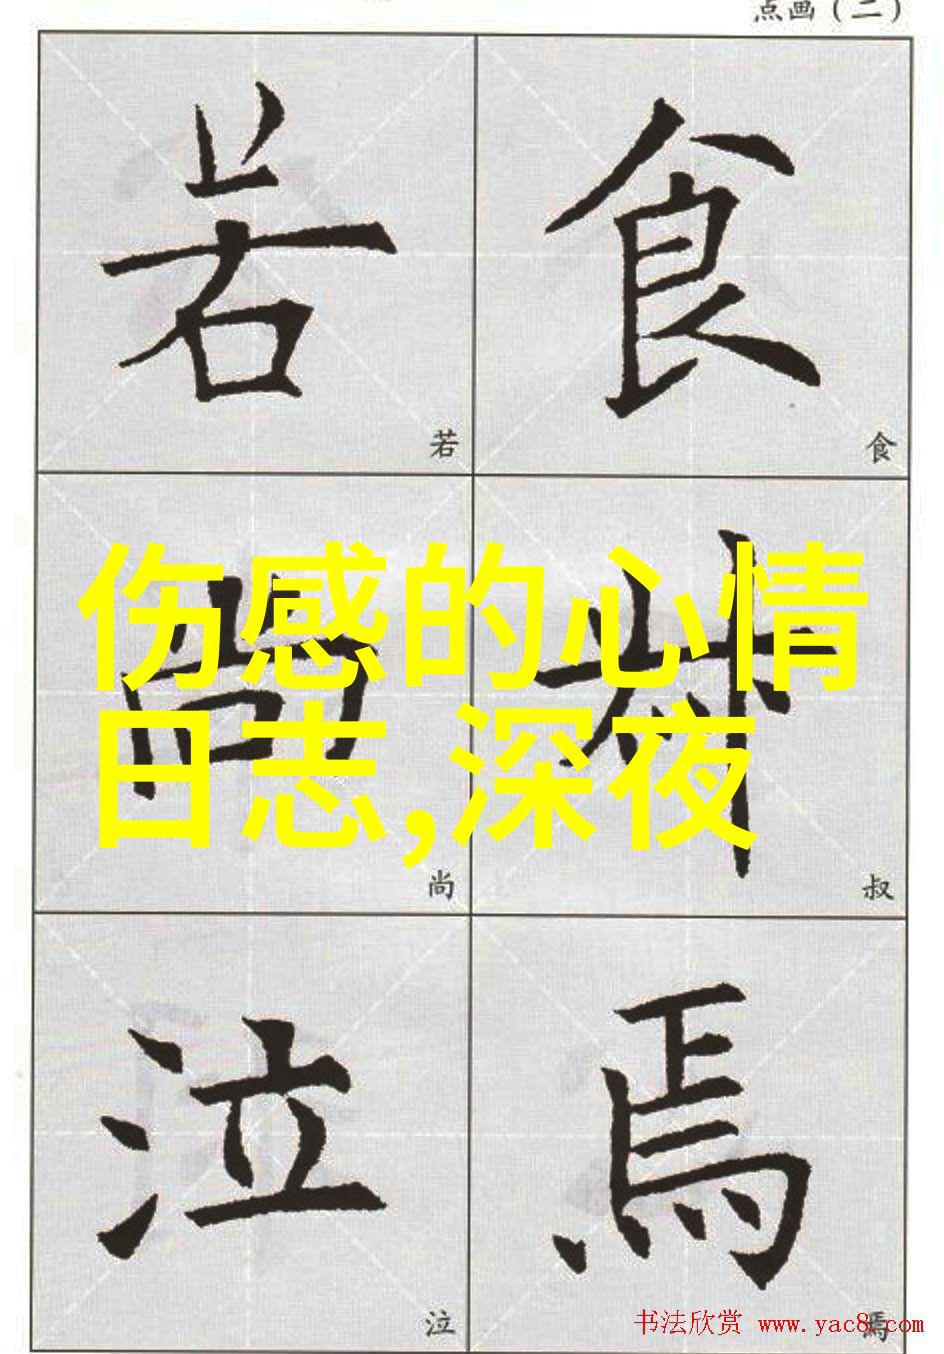 点画(二)
若 食
若 食
伤感的心情
日志,深夜
尚 叔
尚 叔
泣 焉
泣 焉
书法欣赏 www.yac8.com